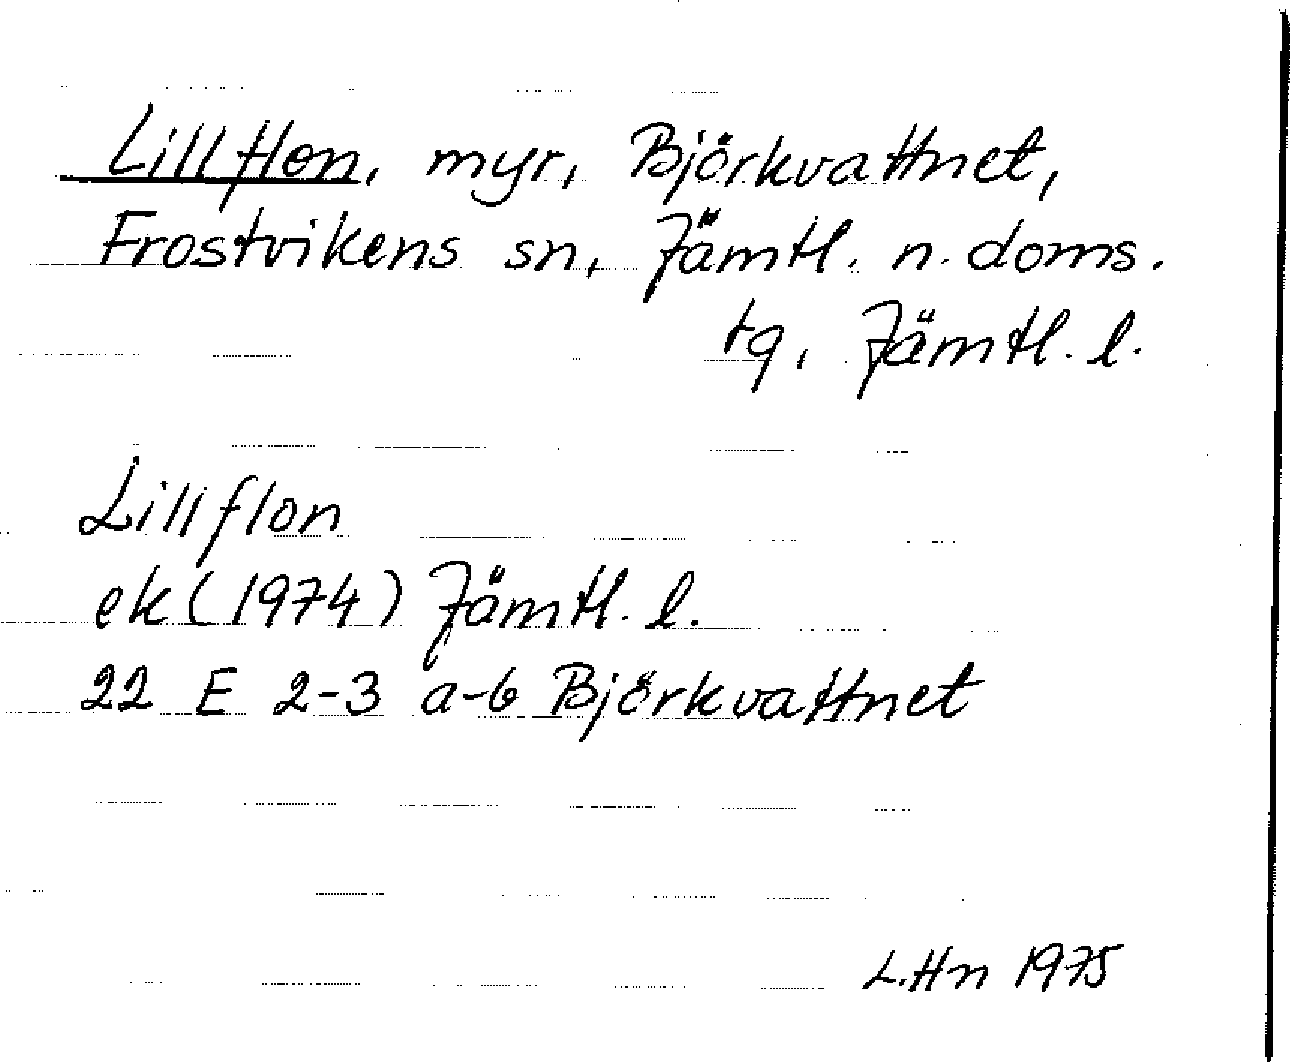 Lillflon, myr, Björkvattnet,
Frostvikens sn, Jämtl. n. doms.
tg, Jämtl. l.
Lillflon
ek (1974) Jämtl. l.
22 E 2-3 a-b Björkvattnet
L.Hn 1975